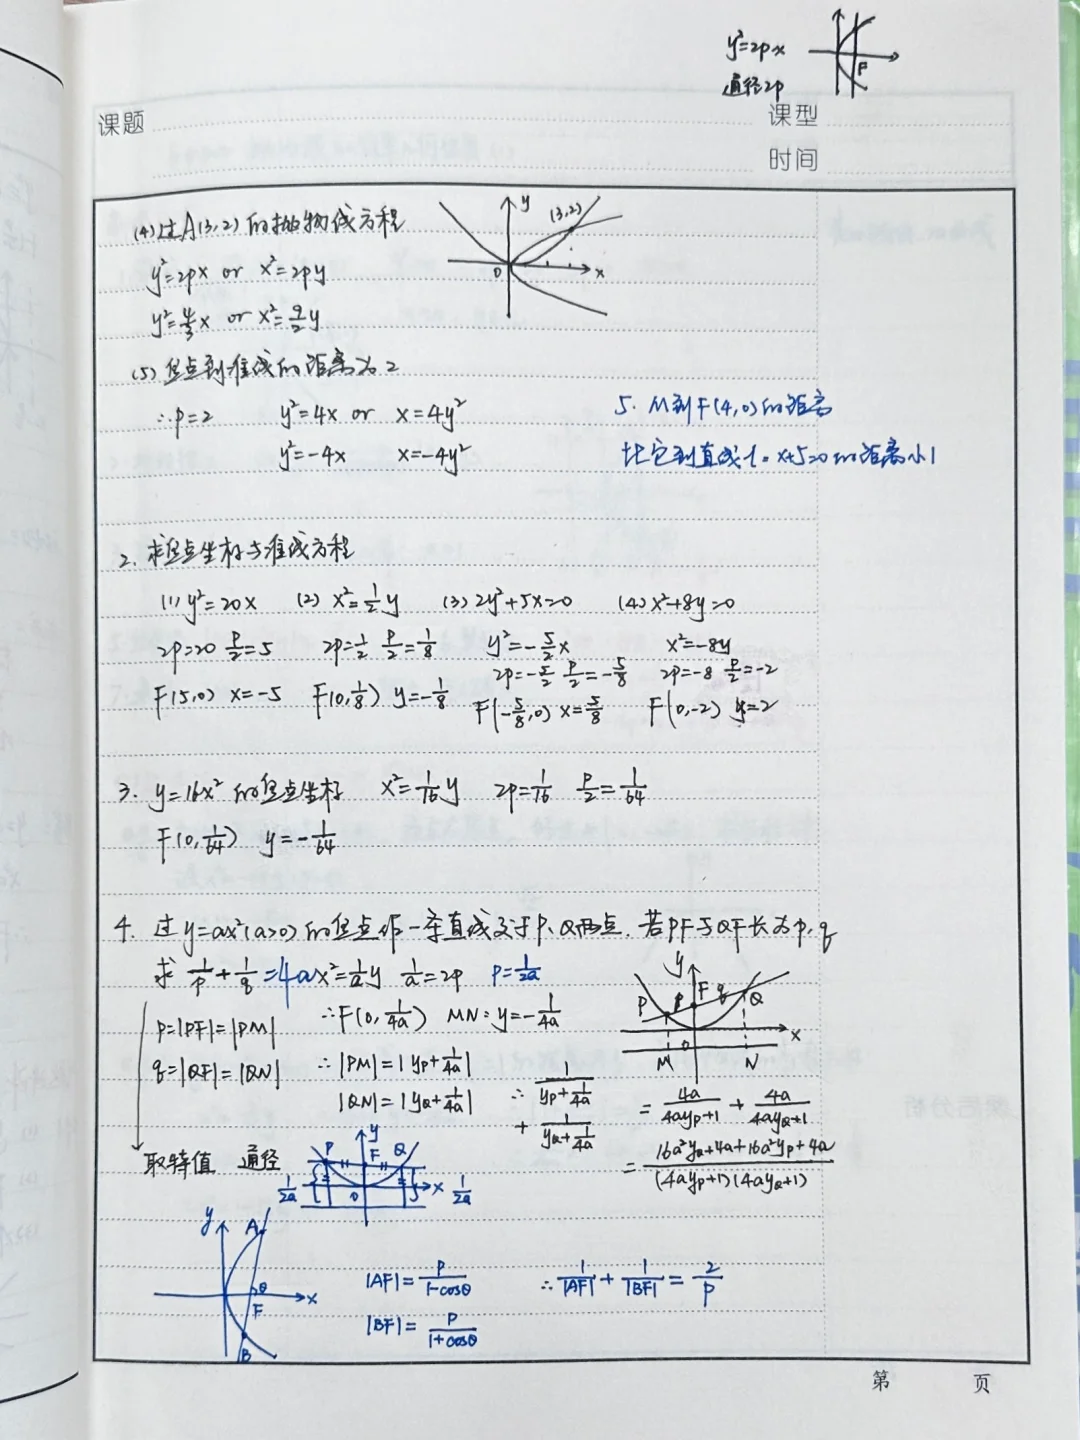 y²=2px
通径2p
F
课题
课型
时间
(4)过A(3,2)的抛物线方程
y²=2px or x²=2py
y²=4/3x or x²=9/2y
y
(3,2)
0
x
(5)焦点到准线的距离为2
∴p=2 y²=4x or x=4y²
y²=-4x x=-4y²
5. M到F(4,0)的距离
比它到直线l:x+5=0的距离小1
2. 求焦点坐标与准线方程
(1)y²=20x (2) x²=1/2y (3)2y²+5x=0 (4)x²+8y=0
2p=20 p/2=5 2p=1/2 p/2=1/8 y²=-5/2x x²=-8y
2p=-5/2 p/2=-5/8 2p=-8 p/2=-2
F(5,0) x=-5 F(0,1/8) y=-1/8 F(-5/8,0) x=5/8 F(0,-2) y=2
3. y=16x²的焦点坐标 x²=1/16y 2p=1/16 p/2=1/64
F(0,1/64) y=-1/64
4. 过y=ax²(a>0)的焦点作一条直线交于P、Q两点.若PF与QF长为p,q
求 1/p+1/q=4a x²=1/a y 1/a=2p p=1/2a
p=|PF|=|PM| ∴F(0,1/4a) MN:y=-1/4a
q=|QF|=|QN| ∴|PM|=|yP+1/4a|
|QN|=|yQ+1/4a|
y
P P F q Q
0 x
M N
∴ 1/(yP+1/4a) + 1/(yQ+1/4a) = 4a/(4ayP+1) + 4a/(4ayQ+1)
= (16a²yQ+4a+16a²yP+4a)/((4ayP+1)(4ayQ+1))
取特值 通径
y
P F Q
1/2a 0 x 1/2a
y A
θ
F x
B
|AF|=p/(1-cosθ) ∴1/|AF|+1/|BF|=2/p
|BF|=p/(1+cosθ)
第 页